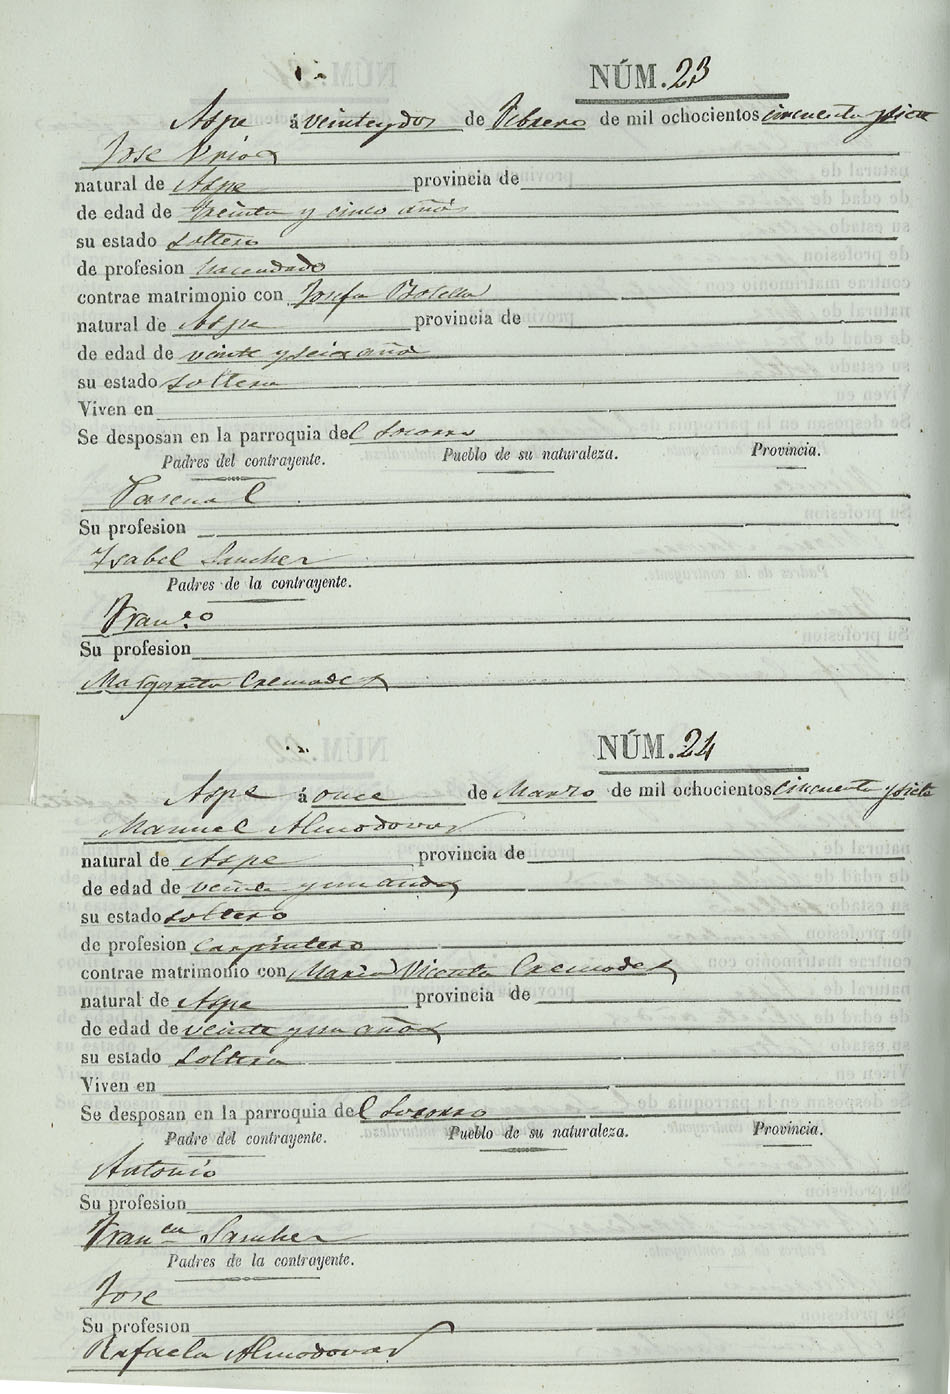 NÚM. 23
Aspe á veinteydos de Febrero de mil ochocientos cincuenta ysiete
Jose
natural de Aspe provincia de
de edad de treinta y cinco años
su estado soltero
de profesion hacendado
contrae matrimonio con Josefa Botella
natural de Aspe provincia de
de edad de veinte yseis años
su estado soltera
Viven en
Se desposan en la parroquia del Socorro
Padres del contrayente. Pueblo de su naturaleza. Provincia.
Pascual
Su profesion
Ysabel Sanchez
Padres de la contrayente.
Fran.co
Su profesion
Margarita Cremades
NÚM. 24
Aspe á once de Marzo de mil ochocientos cincuenta ysiete
Manuel Almodovar
natural de Aspe provincia de
de edad de veinte yun años
su estado soltero
de profesion carpintero
contrae matrimonio con Maria Vicenta Cremades
natural de Aspe provincia de
de edad de veinte yun años
su estado soltera
Viven en
Se desposan en la parroquia del Socorro
Padre del contrayente. Pueblo de su naturaleza. Provincia.
Antonio
Su profesion
Fran.ca Sanchez
Padres de la contrayente.
Jose
Su profesion
Rafaela Almodovar